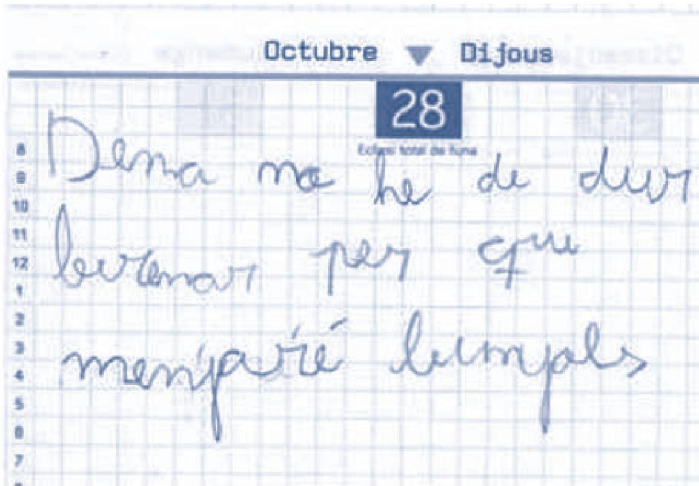 Octubre ▼ Dijous
28
Eclipsi total de lluna
8
9
10
11
12
1
2
3
4
5
6
7
Dema no he de dur
berenar per que
menjaré bunyols